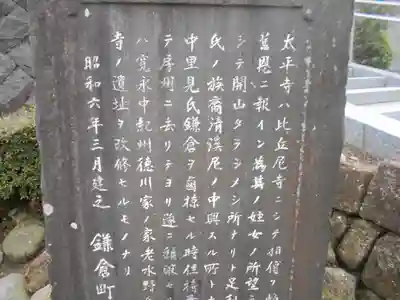 太平寺ハ比丘尼寺ニシテ相傳フ
舊恩ニ報イン為其ノ姪女ノ所望
シテ開山タラシメシ所ナリト足利
氏ノ族裔清溪尼ノ中興スル所ト
中里見氏鎌倉ヲ掠セル時住持
テ房州ニ去リテヨリ遂ニ頽
ハ寛永中紀州徳川家ノ家老水野
寺ノ遺址ヲ改修セルモノナリ
昭和六年三月建之 鎌倉町